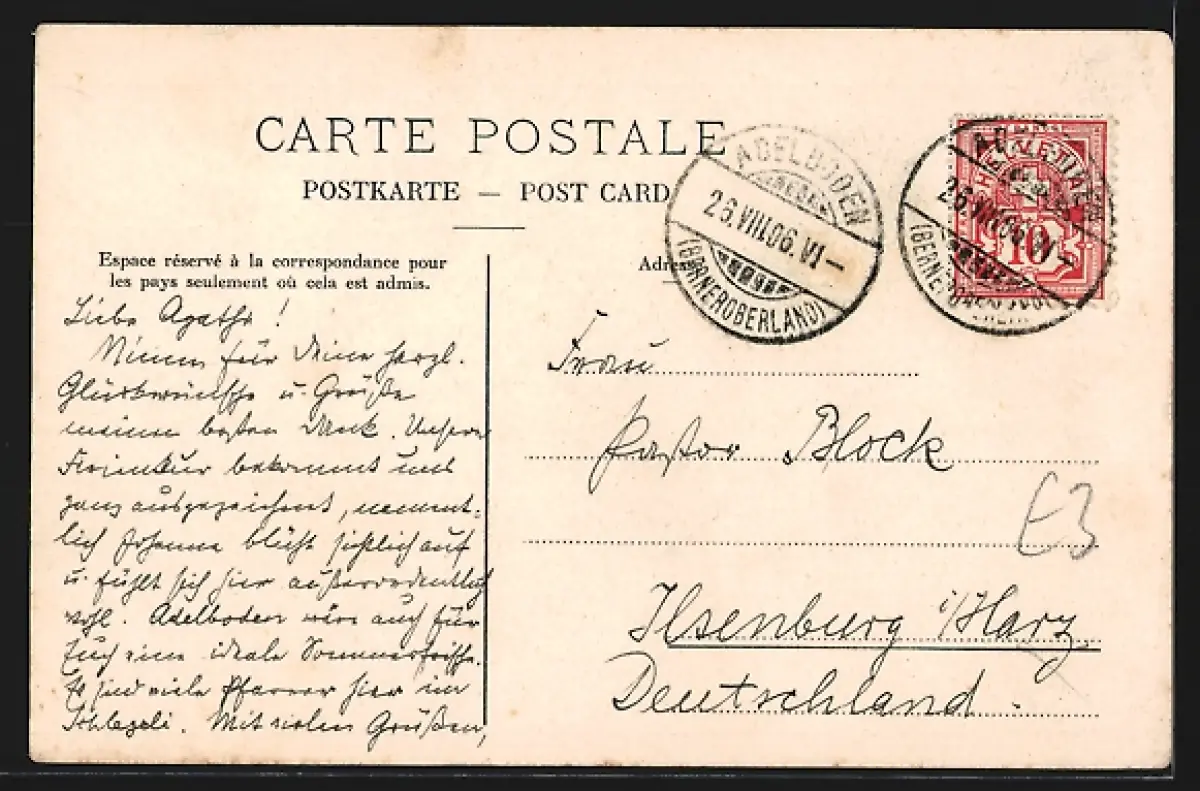 CARTE POSTALE
POSTKARTE — POST CARD
Espace réservé à la correspondance pour
les pays seulement où cela est admis.
Adresse
ADELBODEN
26.VIII.06.VI—
(BERNEROBERLAND)
ADELBODEN
26.VIII.06.VI—
(BERNEROBERLAND)
HELVETIA
FRANCO
10
Liebe Agathe!
für Deine herzl.
Glückwünsche u. Grüße
meinen besten Dank. Unsere
Ferienkur bekommt uns
ganz ausgezeichnet, nament-
lich Johanna blüht sichtlich auf
u. fühlt sich hier außerordentlich
wohl. Adelboden wäre auch für
Euch eine ideale Sommerfrische.
Es sind viele Pfarrer hier im
Schlegeli. Mit vielen Grüßen,
Frau
Pastor Block
Ilsenburg i/Harz.
Deutschland.
£3